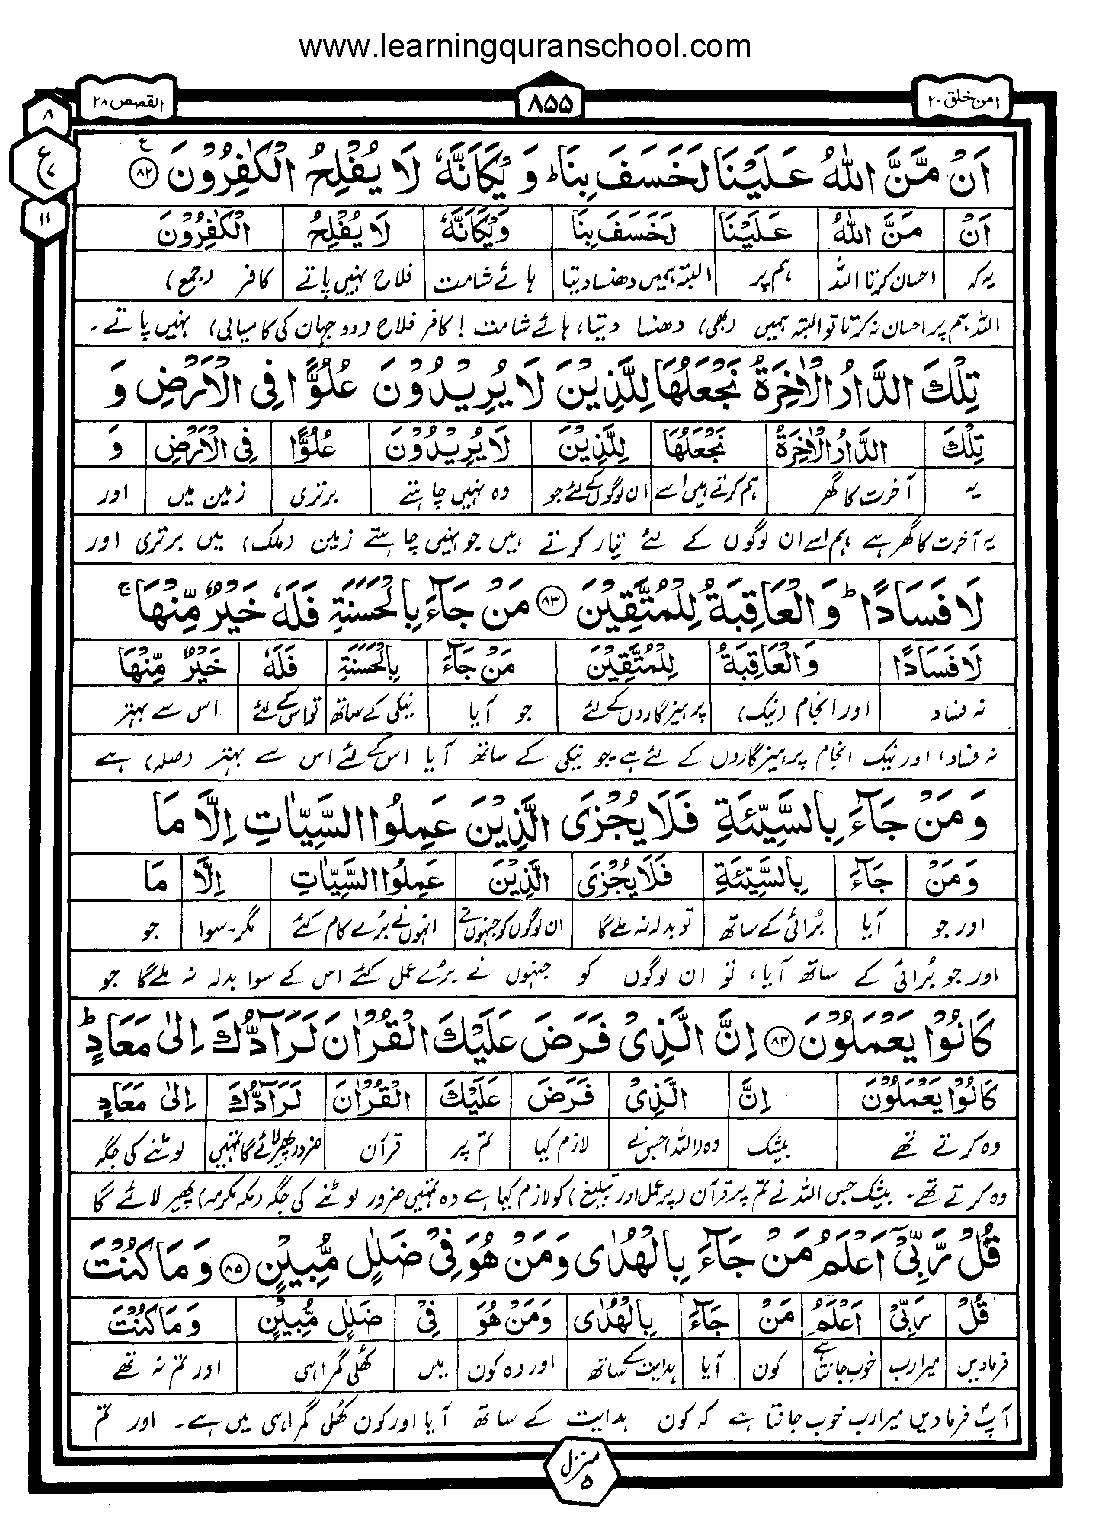 www.learningquranschool.com
امن خلق ٢٠
٨٥٥
القصص ٢٨
٨
ع
٧
١١
اَنْ مَّنَّ اللّٰهُ عَلَيْنَا لَخَسَفَ بِنَا ؕ وَيْكَاَنَّهٗ لَا يُفْلِحُ الْكٰفِرُوْنَ ٨٢ ع
اَنْ مَنَّ اللّٰهُ عَلَيْنَا لَخَسَفَ بِنَا وَيْكَاَنَّهٗ لَا يُفْلِحُ الْكٰفِرُوْنَ
یہ کہ احسان کرتا اللہ ہم پر البتہ ہمیں دھنسا دیتا ہائے شامت فلاح نہیں پاتے کافر (جمع)
اللہ ہم پر احسان نہ کرتا تو البتہ ہمیں (بھی) دھنسا دیتا، ہائے شامت! کافر فلاح (دو جہان کی کامیابی) نہیں پاتے۔
تِلْكَ الدَّارُ الْاٰخِرَةُ نَجْعَلُهَا لِلَّذِيْنَ لَا يُرِيْدُوْنَ عُلُوًّا فِى الْاَرْضِ وَ
تِلْكَ الدَّارُ الْاٰخِرَةُ نَجْعَلُهَا لِلَّذِيْنَ لَا يُرِيْدُوْنَ عُلُوًّا فِى الْاَرْضِ وَ
یہ آخرت کا گھر ہم کرتے ہیں اسے ان لوگوں کے لئے جو وہ نہیں چاہتے برتری زمین میں اور
یہ آخرت کا گھر ہے ہم اسے ان لوگوں کے لئے تیار کرتے ہیں جو نہیں چاہتے زمین (ملک) میں برتری اور
لَا فَسَادًا ؕ وَالْعَاقِبَةُ لِلْمُتَّقِيْنَ ٨٣ مَنْ جَآءَ بِالْحَسَنَةِ فَلَهٗ خَيْرٌ مِّنْهَا ۚ
لَا فَسَادًا وَالْعَاقِبَةُ لِلْمُتَّقِيْنَ مَنْ جَآءَ بِالْحَسَنَةِ فَلَهٗ خَيْرٌ مِّنْهَا
نہ فساد اور انجام (نیک) پرہیزگاروں کے لئے جو آیا نیکی کے ساتھ تو اس کے لئے اس سے بہتر
نہ فساد، اور نیک انجام پرہیزگاروں کے لئے ہے جو نیکی کے ساتھ آیا اس کے لئے اس سے بہتر (صلہ) ہے
وَمَنْ جَآءَ بِالسَّيِّئَةِ فَلَا يُجْزَى الَّذِيْنَ عَمِلُوا السَّيِّاٰتِ اِلَّا مَا
وَمَنْ جَآءَ بِالسَّيِّئَةِ فَلَا يُجْزَى الَّذِيْنَ عَمِلُوا السَّيِّاٰتِ اِلَّا مَا
اور جو آیا بُرائی کے ساتھ تو بدلہ نہ ملے گا ان لوگوں کو جنہوں نے انہوں نے بُرے کام کئے مگر۔سوا جو
اور جو بُرائی کے ساتھ آیا، تو ان لوگوں کو جنہوں نے بُرے عمل کئے اس کے سوا بدلہ نہ ملے گا جو
كَانُوْا يَعْمَلُوْنَ ٨٤ اِنَّ الَّذِىْ فَرَضَ عَلَيْكَ الْقُرْاٰنَ لَرَآدُّكَ اِلٰى مَعَادٍ ؕ
كَانُوْا يَعْمَلُوْنَ اِنَّ الَّذِىْ فَرَضَ عَلَيْكَ الْقُرْاٰنَ لَرَآدُّكَ اِلٰى مَعَادٍ
وہ کرتے تھے بیشک وہ (اللہ) جس نے لازم کیا تم پر قرآن ضرور پھیر لائے گا تمہیں لوٹنے کی جگہ
وہ کرتے تھے۔ بیشک جس اللہ نے تم پر قرآن (پر عمل اور تبلیغ) کو لازم کیا ہے وہ تمہیں ضرور لوٹنے کی جگہ (مکہ مکرمہ) پھیر لائے گا
قُلْ رَّبِّىْٓ اَعْلَمُ مَنْ جَآءَ بِالْهُدٰى وَمَنْ هُوَ فِىْ ضَلٰلٍ مُّبِيْنٍ ٨٥ وَمَا كُنْتَ
قُلْ رَبِّىْ اَعْلَمُ مَنْ جَآءَ بِالْهُدٰى وَمَنْ هُوَ فِىْ ضَلٰلٍ مُّبِيْنٍ وَمَا كُنْتَ
فرمادیں میرا رب خوب جانتا ہے کون آیا ہدایت کے ساتھ اور وہ کون میں کھلی گمراہی اور تم نہ تھے
آپؐ فرمادیں میرا رب خوب جانتا ہے کہ کون ہدایت کے ساتھ آیا اور کون کھلی گمراہی میں ہے۔ اور تم
منزل ٥